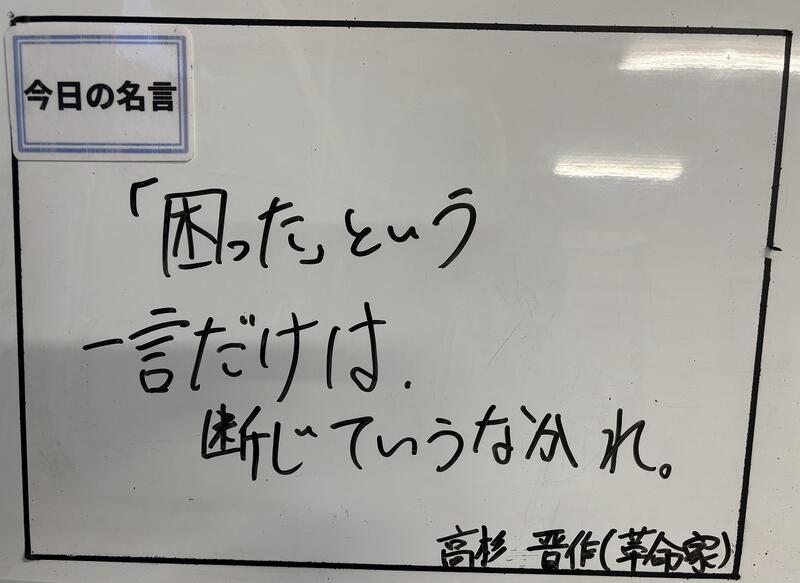 今日の名言
「困った」という
一言だけは.
断じていうなかれ。
高杉 晋作(革命家)